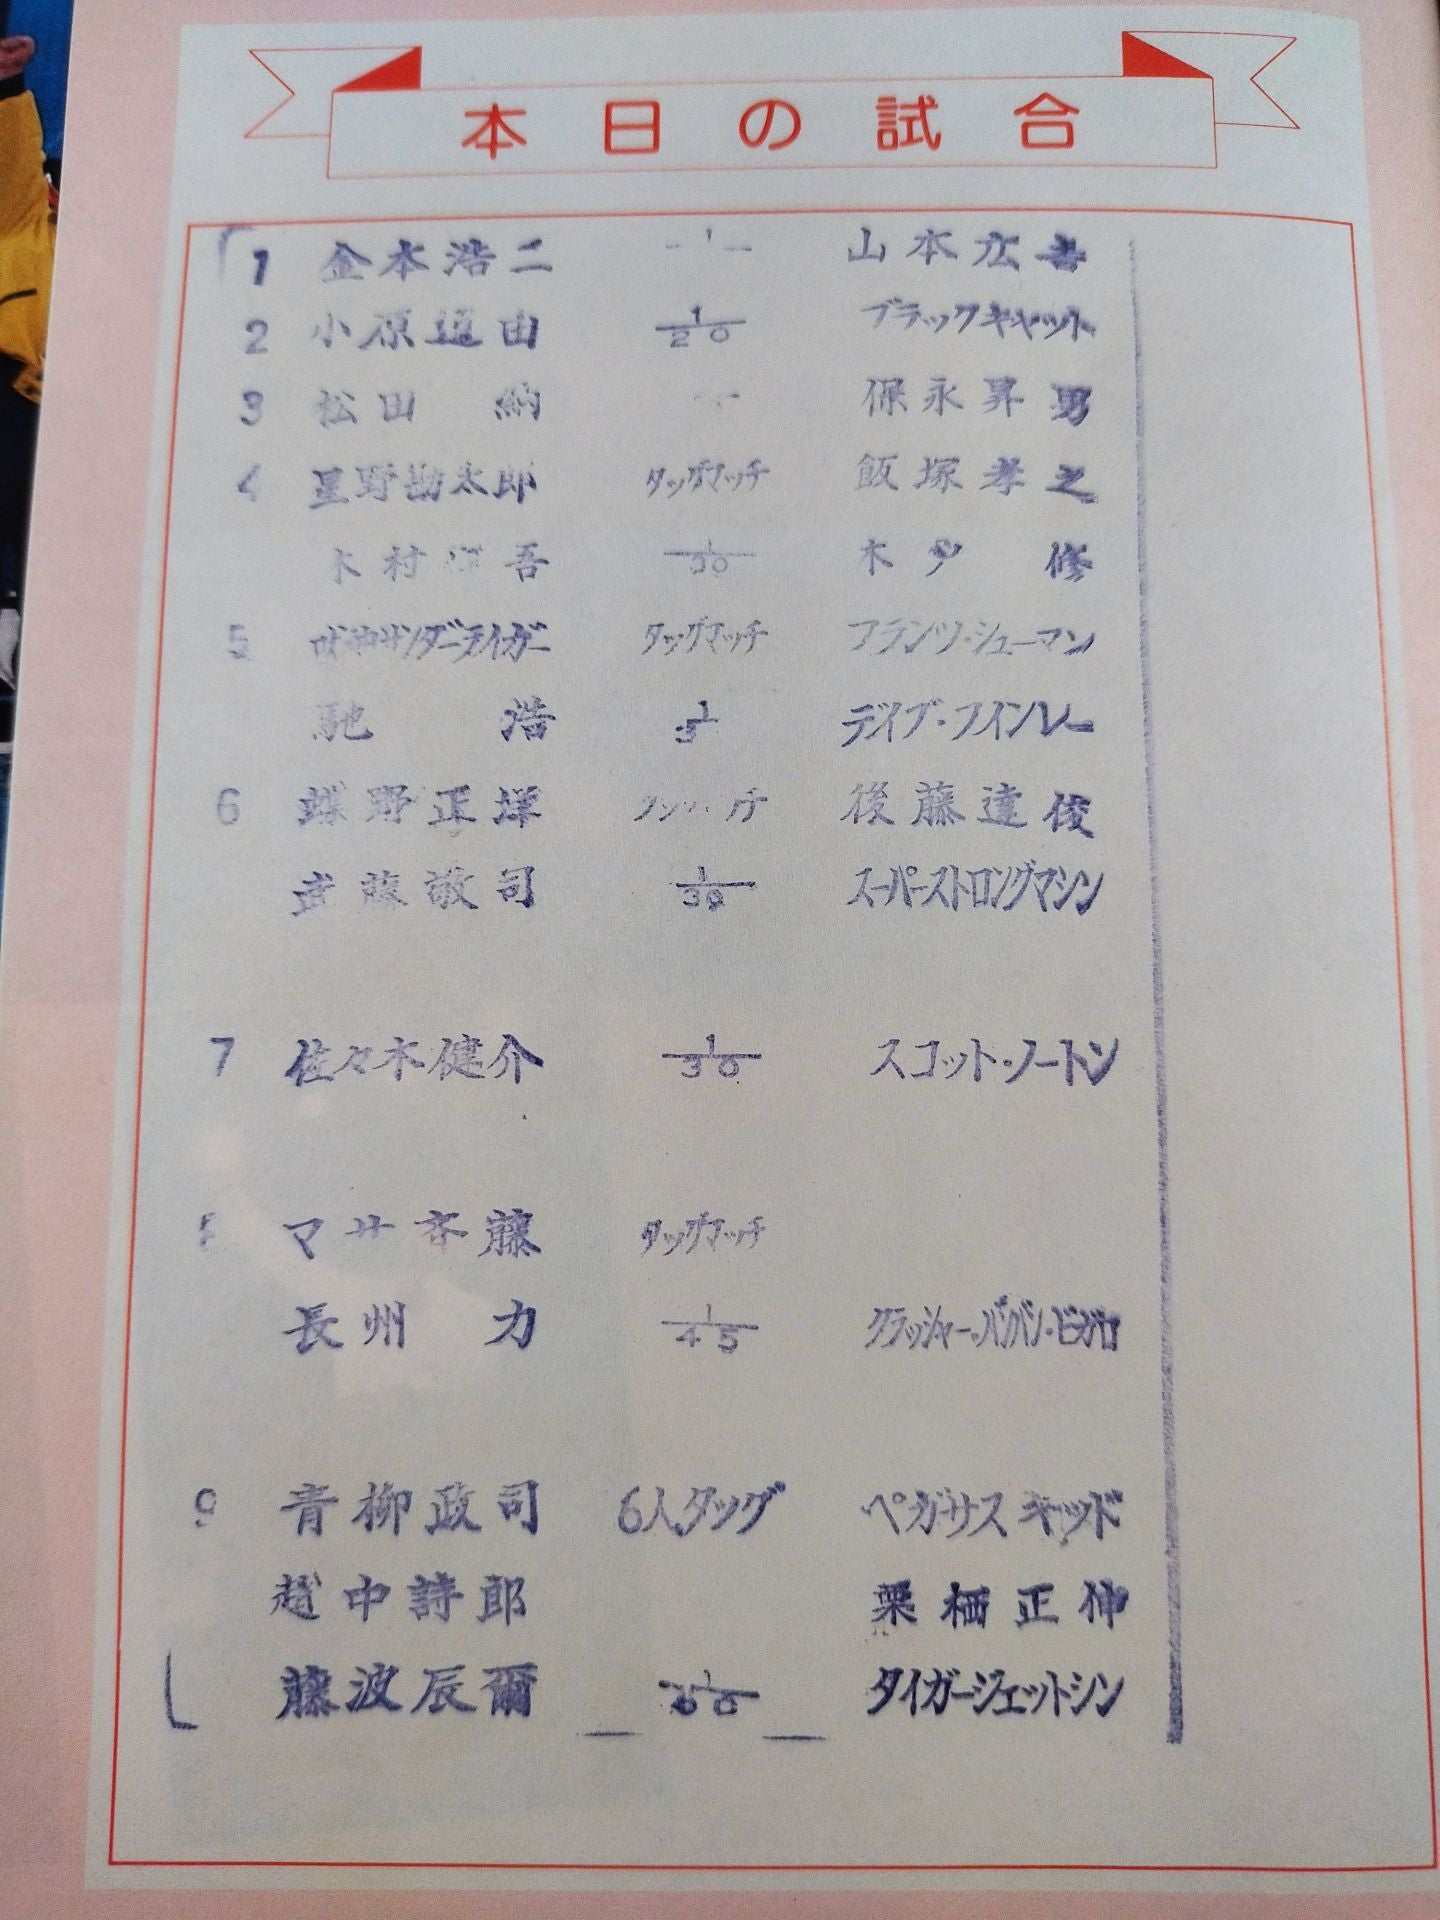 本日の試合
1 金本浩二 山本広吉
2 小原道由 1/20 ブラックキャット
3 松田 納 保永昇男
4 星野勘太郎 タッグマッチ 飯塚孝之
木村 吾 1/30 木戸 修
5 サンダーライガー タッグマッチ フランツ・シューマン
馳 浩 デイブ・フインレー
6 蝶野正洋 後藤達俊
武藤敬司 1/30 スーパーストロングマシン
7 佐々木健介 1/30 スコット・ノートン
マサ斉藤 タッグマッチ
長州 力 1/45 クラッシャー・バンバン・ビガロ
9 青柳政司 6人タッグ ペガサスキッド
越中詩郎 栗栖正伸
藤波辰爾 1/60 タイガージェットシン